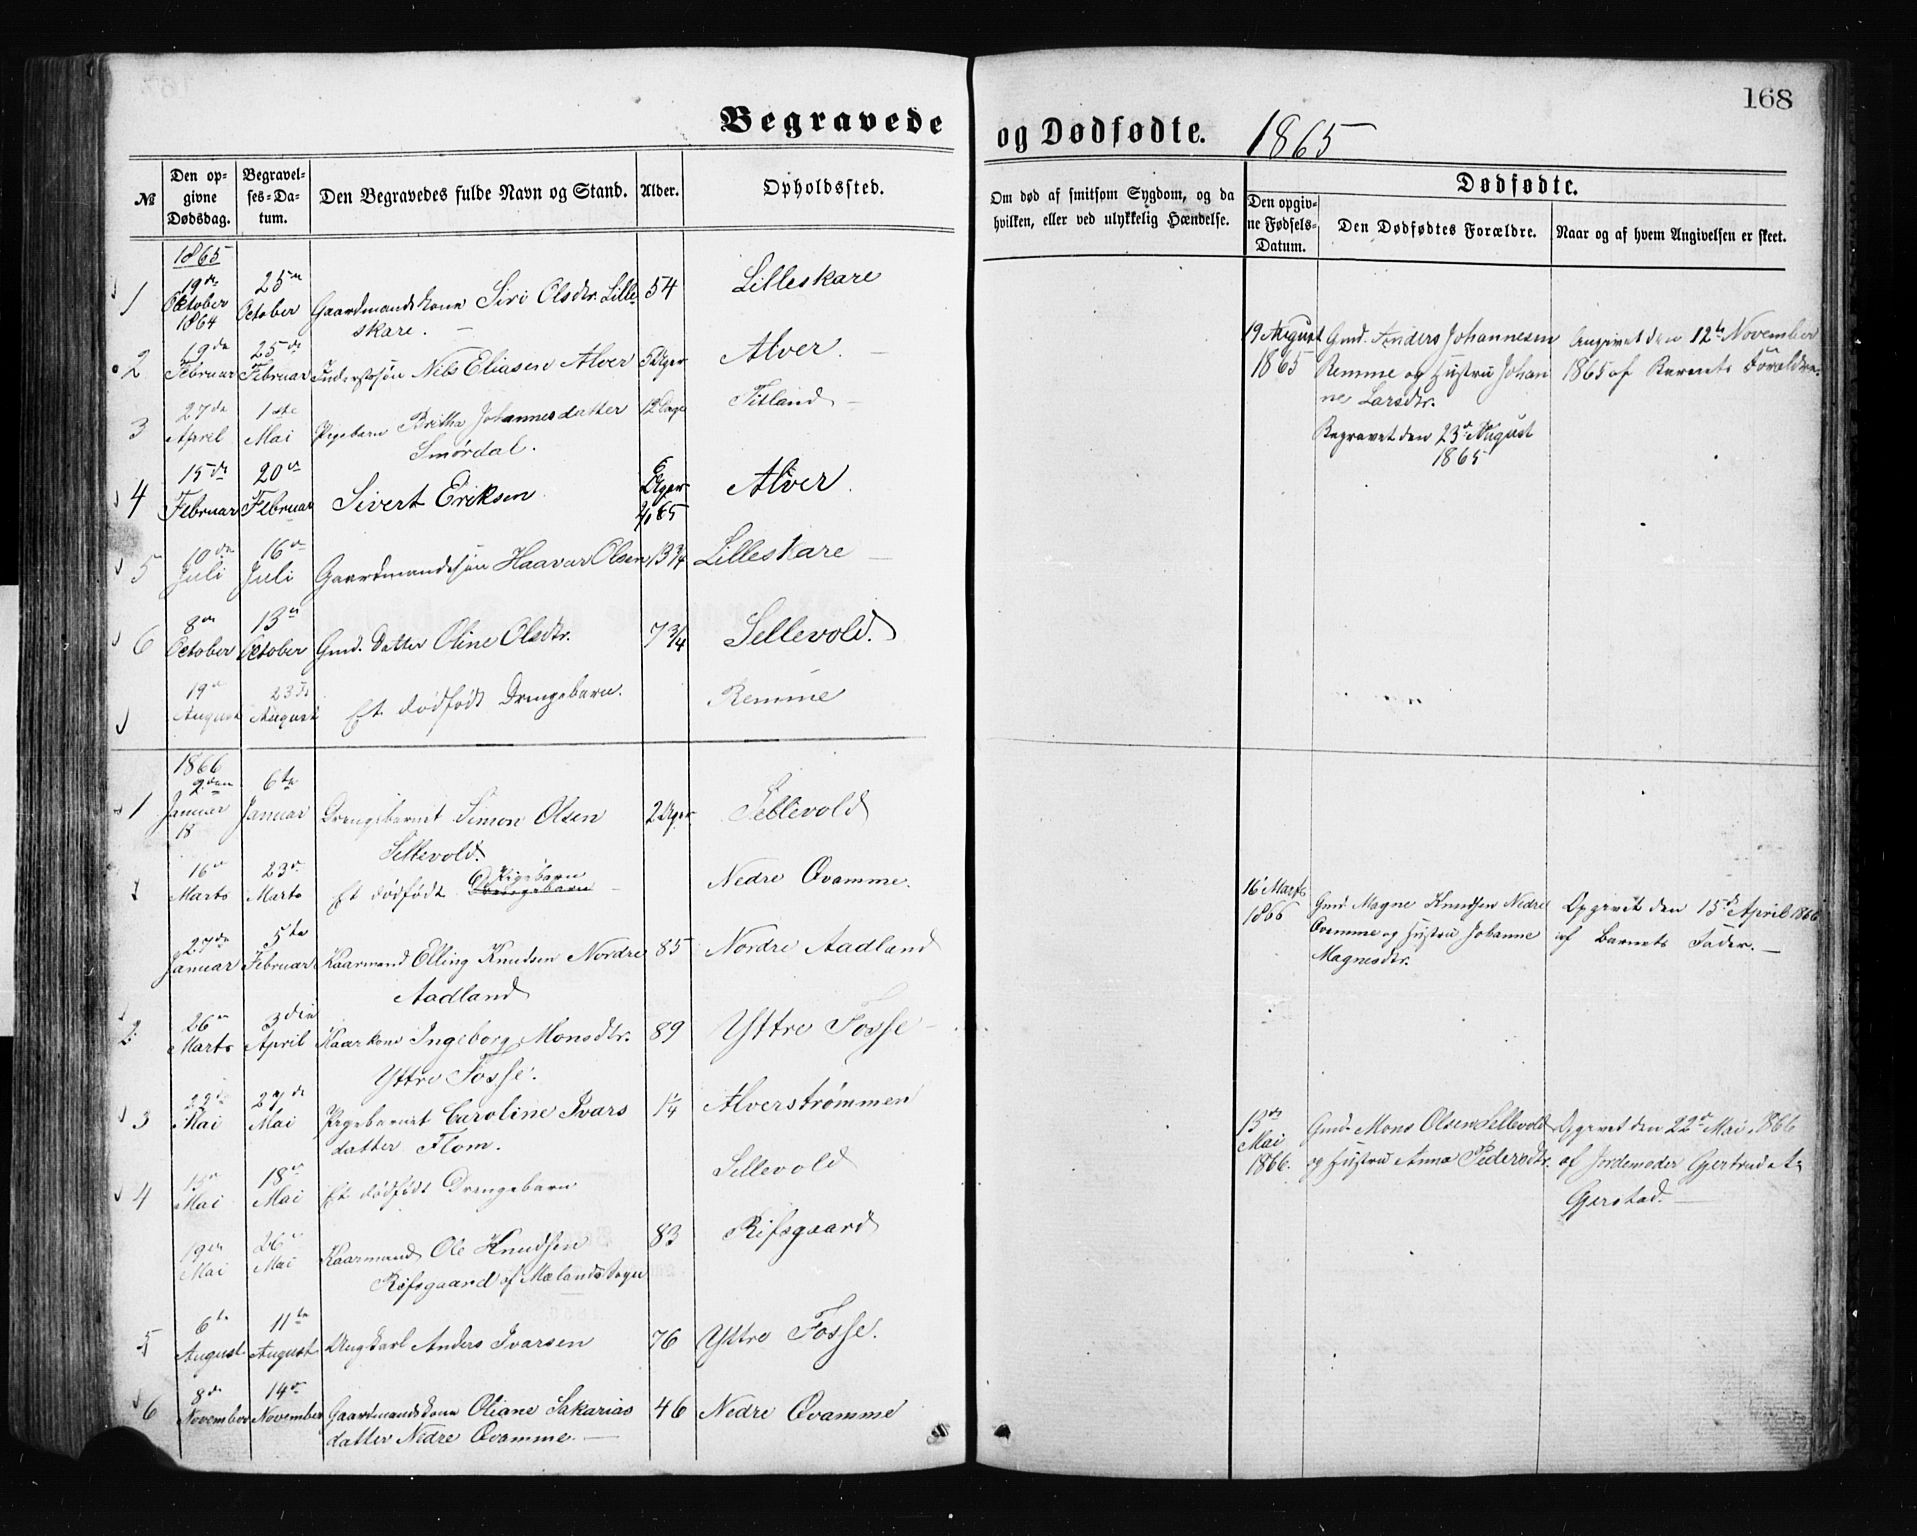 168
Begravede og Dødfødte. 1865
№ Den opgivne Dødsdag. Begravelses-Datum. Den Begravedes fulde Navn og Stand. Alder. Opholdssted. Om død af smitsom Sygdom, og da hvilken, eller ved ulykkelig Hændelse.
Dødfødte.
Den opgivne Fødsels-Datum. Den Dødfødtes Forældre. Naar og af hvem Angivelsen er skeet.
1865
1 19de October 1864 25de October Gaardmandskone Siri Olsdtr. Lilleskare. 54 Lilleskare
2 19de Februar 25de Februar Inderstesøn Nils Eliasen Alver 5 Uger Alver.
19 August 1865 Gmd. Anders Johannesen
Remme og Hustru Johanne Larsdtr.
Begravet den 23de August 1865
Angivet den 12te November
1865 af Barnets Forældre
3 27de April 1ste Mai Pigebarn Britha Johannesdatter Smørdal. 12 Dage Titland
4 15de Februar 20de Februar Sivert Eriksen 6 Uger Alver.
5 10de Juli 16de Juli Gaardmandssøn Haavar Olsen 13 3/4 Lilleskare
6 8de October 13de October Gmd. Datter Oline Olsdtr. 7 3/4 Sellevold.
19de August 23de August Et dødfødt Drengebarn. Remme
1866
1 2den Januar 6te Januar Drengebarnet Simon Olsen Sellevold. 2 Uger Sellevold
16de Marts 23de Marts Et dødfødt Pigebarn Drengebarn Nedre Qvamme.
16 Marts 1866 Gmd. Magne Knudsen Nedre
Qvamme og Hustru Johanne
Magnesdtr.
Opgivet den 15de April 1866
af Barnets Fader.
27de Januar 5te Februar Kaarmand Elling Knudsen Nordre Aadland 85 Nordre Aadland
2 26de Marts 3die April Kaarkone Ingeborg Monsdtr. Yttre Fosse. 89 Yttre Fosse
3 22de Mai 27de Mai Pigebarnet Caroline Ivarsdatter Flom. 1/4 Alverstrømmen
13de Mai 1866. Gmd. Mons Olsen Sellevold
og Hustru Anna Pedersdtr.
Opgivet den 22de Mai 1866
af Jordemoder Gjertrud
Gjerstad.
4 Mai 18de Mai Et dødfødt Drengebarn Sellevold
19de Mai 26de Mai Kaarmand Ole Knudsen Rifsgaard af Mælands Sogn 83 Rifsgaard
5 6te August 11te August Ungkarl Anders Ivarsen 76 Yttre Fosse.
6 8de November 14de November Gaardmandskone Oliane Sakariasdatter Nedre Qvamme. 46 Nedre Qvamme